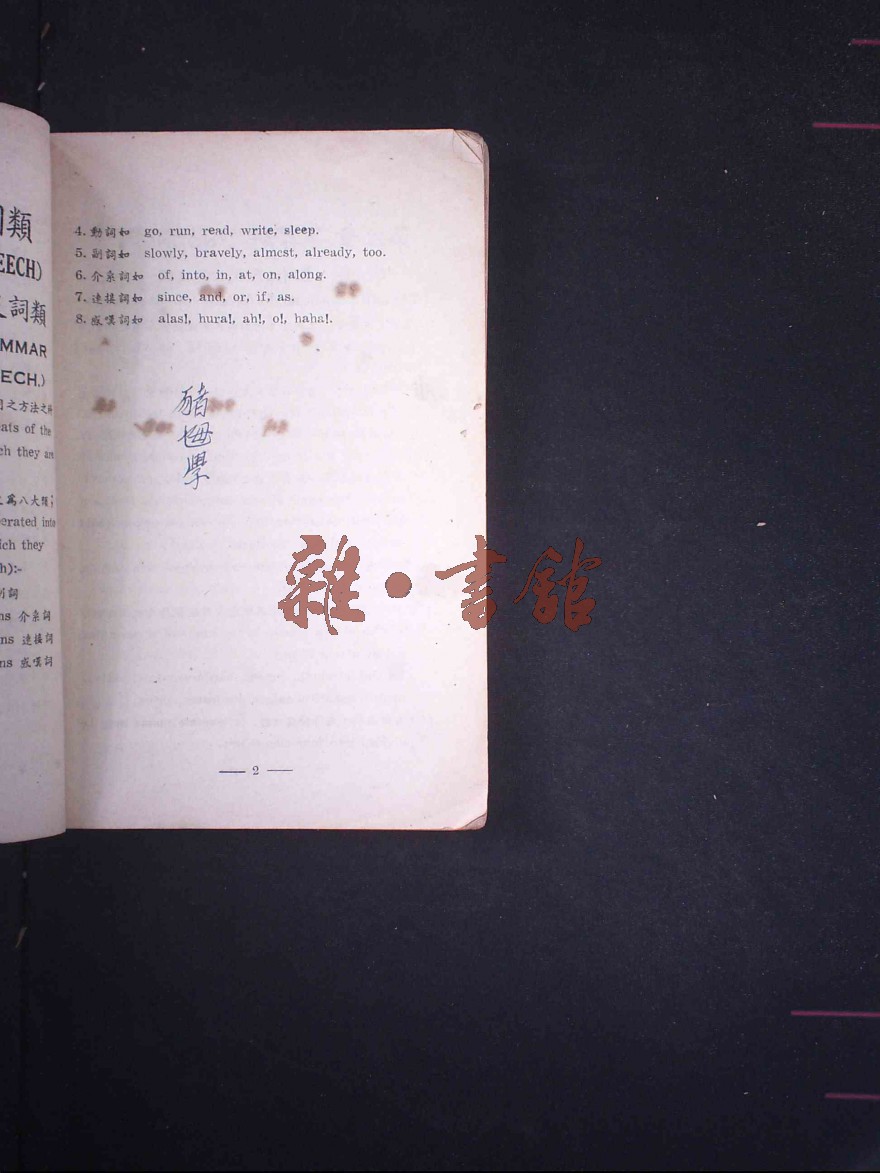 詞類
EECH)
詞類
MMAR
ECH.)
之方法之
eats of the
ch they are
爲八大類;
erated into
ich they
h):-
詞
ns 介系詞
ns 連接詞
ns 感嘆詞
4. 動詞如 go, run, read, write, sleep.
5. 副詞如 slowly, bravely, almcst, already, too.
6. 介系詞如 of, into, in, at, on, along.
7. 連接詞如 since, and, or, if, as.
8. 感嘆詞如 alas!, hura!, ah!, o!, haha!.
豬
母
學
雜·書館
— 2 —